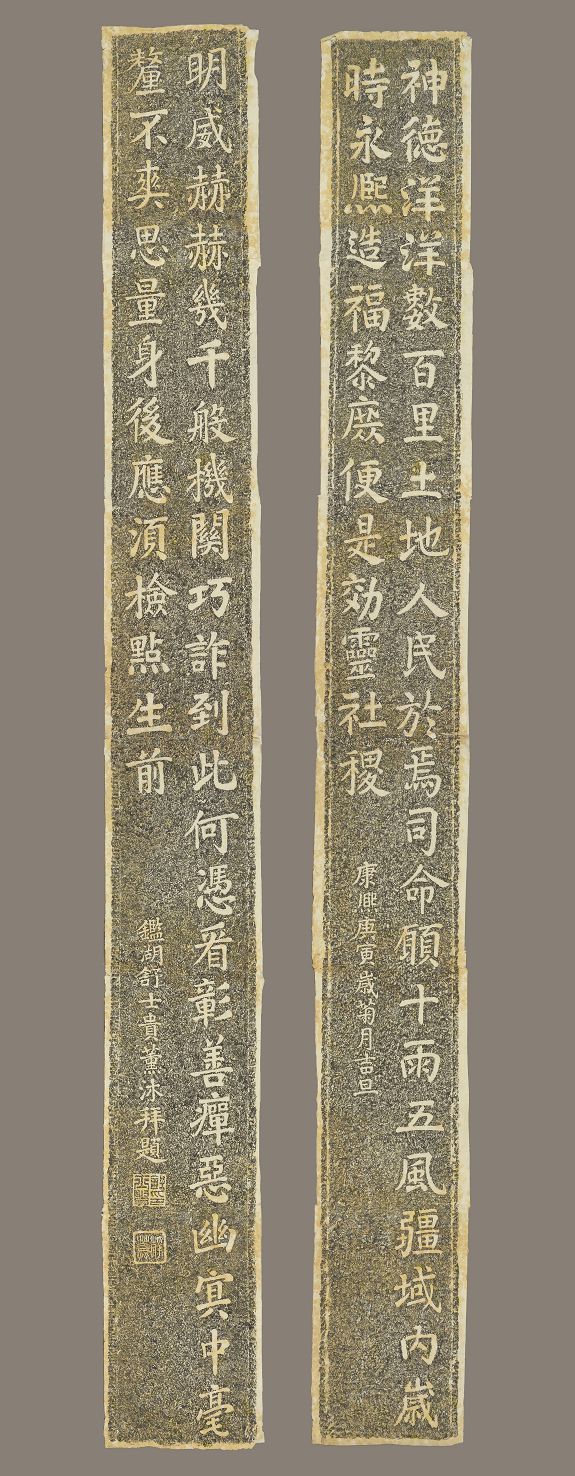 神德洋洋數百里土地人民於焉司命願十雨五風疆域內歲
時永熙造福黎庶便是効靈社稷
康熙庚寅歲菊月吉旦
明威赫赫幾千般機關巧詐到此何憑看彰善癉惡幽冥中毫
釐不爽思量身後應須檢點生前
鑑湖舒士貴薰沐拜題